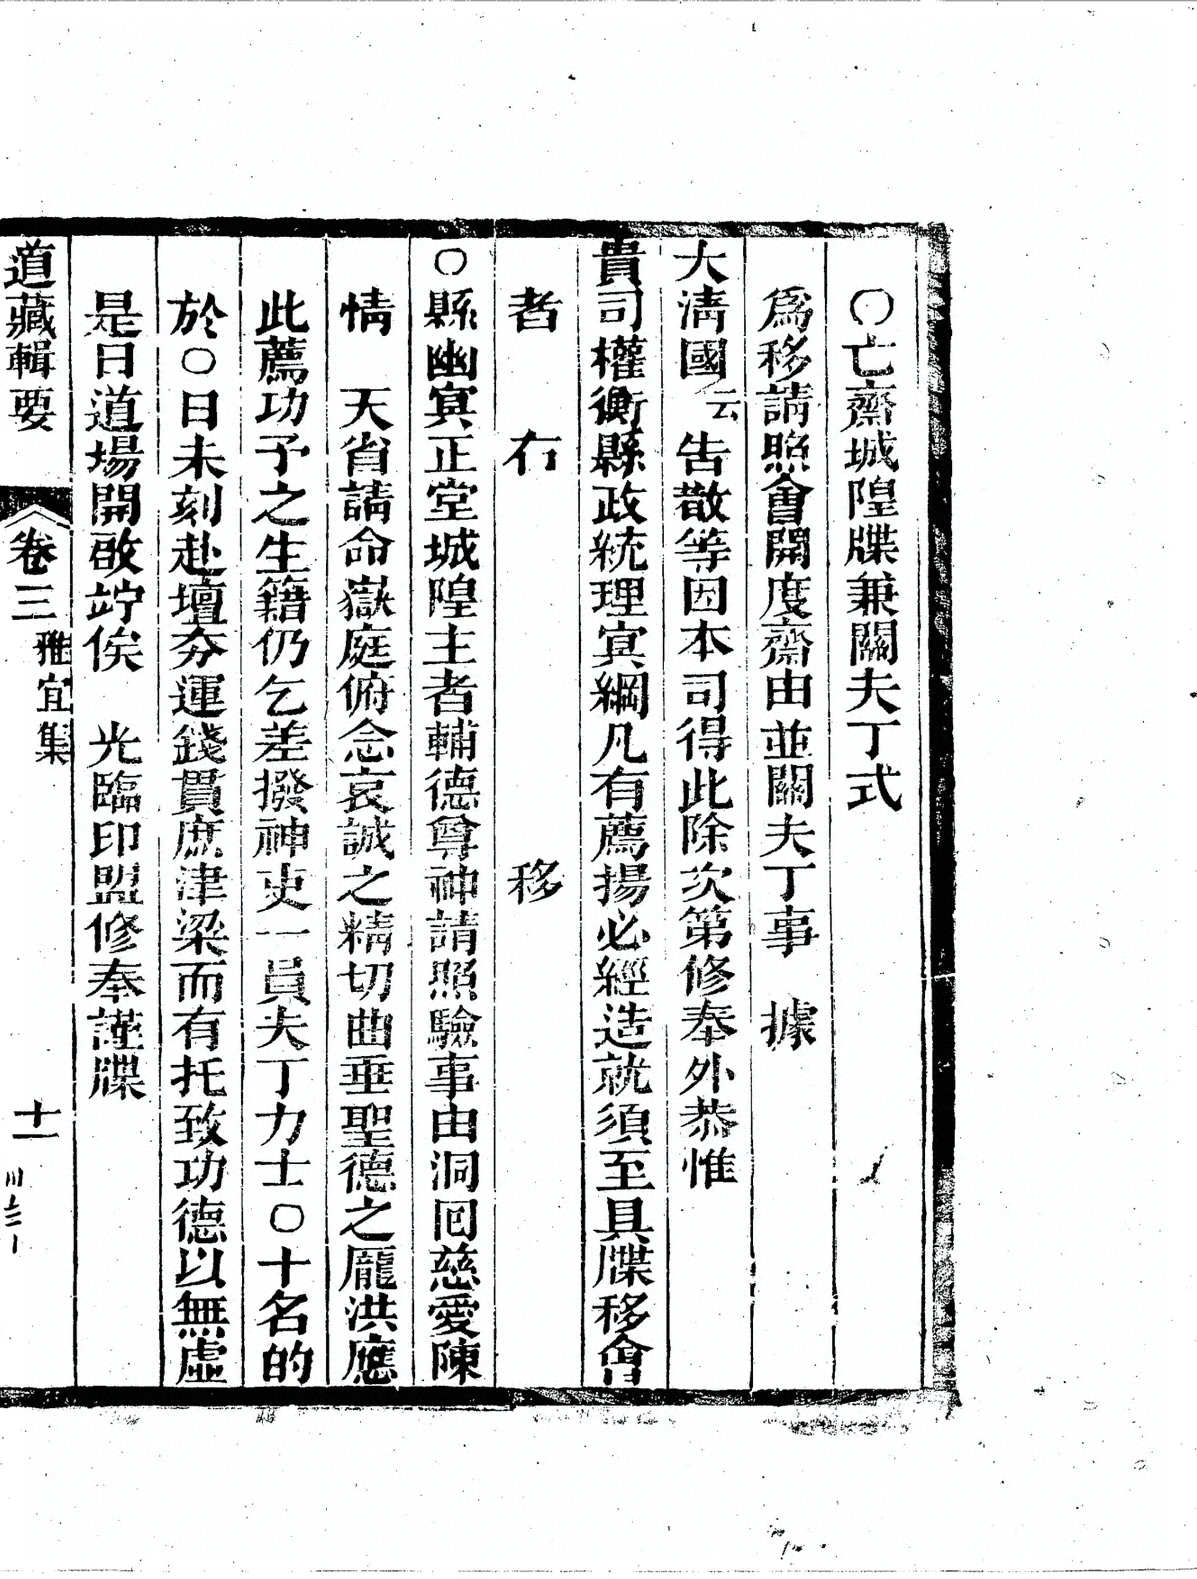 〇亡齋城隍牒兼關夫丁式
為移請照會開度齋由並關夫丁事　據
大淸國云　告散等因本司得此除次第修奉外恭惟
貴司權衡縣政統理冥綱凡有薦揚必經造就須至具牒移會
者　　右　　　　　　　　移
〇縣幽冥正堂城隍主者輔德尊神請照驗事由洞囘慈愛陳
情　天省請命嶽庭俯念哀誠之精切曲垂聖德之龐洪應
此薦功予之生籍仍乞差撥神吏一員夫丁力士〇十名的
於〇日未刻赴壇夯運錢貫庶津梁而有托致功德以無虛
是日道場開啟竚俟　光臨印盟修奉謹牒
道藏輯要　卷三　雅宜集　十一